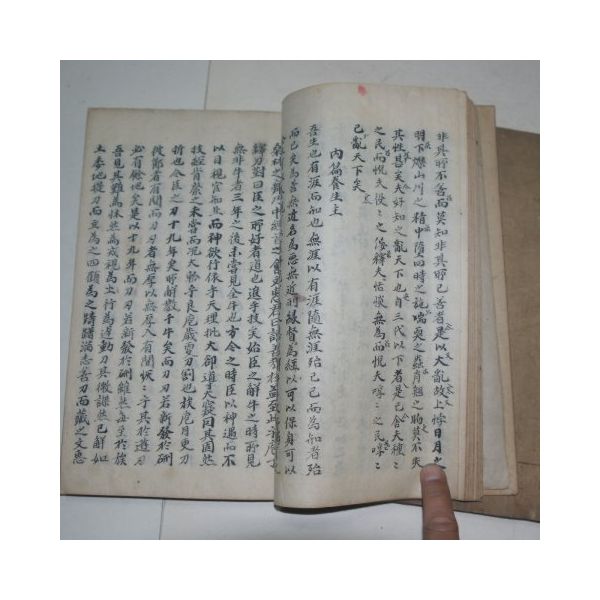 非其所不善而莫知非其所已善者是以大亂故上悖日月之
明下爍山川之精中墮四時之施喘耎之蟲肖翹之物莫不失
其性甚矣夫好知之亂天下也自三代以下者是已舍夫種〻
之民而悅夫役〻之佞釋夫恬惔無為而悅夫啍〻之民啍〻
已亂天下矣
內篇養生主
吾生也有涯而知也無涯以有涯隨無涯殆已已而為知者殆
而已矣為善無近名為惡無近刑緣督為經以可以保身可以
桑林之舞乃中經首之會文惠君曰譆善哉技盖至此乎庖丁
釋刀對曰臣之所好者道也進乎技矣始臣之解牛之時所見
無非牛者三年之後未嘗見全牛也方今之時臣以神遇而不
以目視官知止而神欲行依乎天理批大郤導大窾因其固然
技經肯綮之未嘗而況大軱乎良庖歲更刀割也族庖月更刀
折也今臣之刀十九年矣所解數千牛矣而刀刃若新發於硎
彼節者有間而刀刃者無厚以無厚入有間恢〻乎其於遊刃
必有餘地矣是以十九年而刀刃若新發於硎雖然每至於族
吾見其難為怵然為戒視為止行為遲動刀甚微謋然已解如
土委地提刀而立為之四顧為之躊躇滿志善刀而藏之文惠